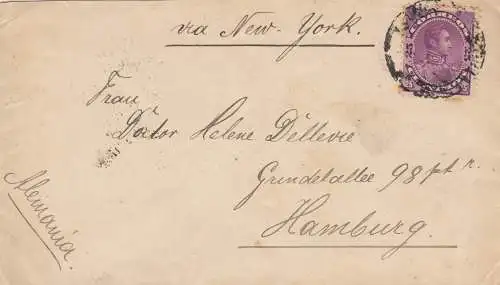 via New-York.
25 25
Frau
Doctor Helene Dellevie
Grindelallee 98 pt r.
Hamburg.
Alemania.